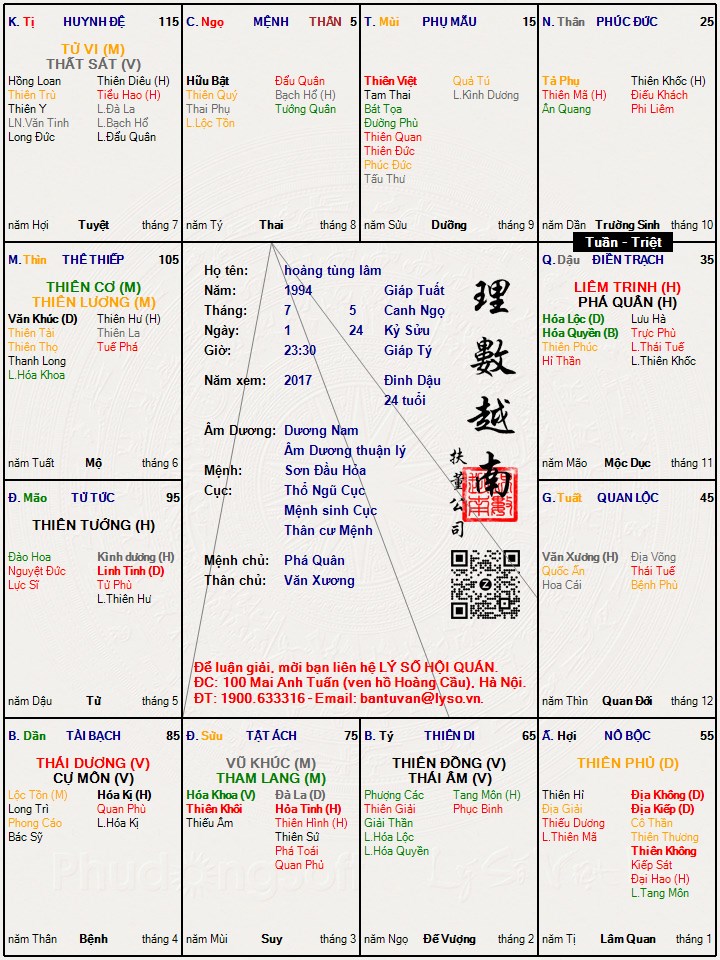 K. Tị HUYNH ĐỆ 115
TỬ VI (M)
THẤT SÁT (V)
Hồng Loan Thiên Diêu (H)
Thiên Trù Tiểu Hao (H)
Thiên Y L.Đà La
LN.Văn Tinh L.Bạch Hổ
Long Đức L.Đẩu Quân
năm Hợi Tuyệt tháng 7
C. Ngọ MỆNH THÂN 5
Hữu Bật Đẩu Quân
Thiên Quý Bạch Hổ (H)
Thai Phụ Tướng Quân
L.Lộc Tồn
năm Tý Thai tháng 8
T. Mùi PHỤ MẪU 15
Thiên Việt Quả Tú
Tam Thai L.Kình Dương
Bát Tọa
Đường Phù
Thiên Quan
Thiên Đức
Phúc Đức
Tấu Thư
năm Sửu Dưỡng tháng 9
N. Thân PHÚC ĐỨC 25
Tả Phụ Thiên Khốc (H)
Thiên Mã (H) Điếu Khách
Ân Quang Phi Liêm
năm Dần Trường Sinh tháng 10
Tuần - Triệt
M. Thìn THÊ THIẾP 105
THIÊN CƠ (M)
THIÊN LƯƠNG (M)
Văn Khúc (D) Thiên Hư (H)
Thiên Tài Thiên La
Thiên Thọ Tuế Phá
Thanh Long
L.Hóa Khoa
năm Tuất Mộ tháng 6
Họ tên: hoàng tùng lâm
Năm: 1994 Giáp Tuất
Tháng: 7 5 Canh Ngọ
Ngày: 1 24 Kỷ Sửu
Giờ: 23:30 Giáp Tý
Năm xem: 2017 Đinh Dậu
24 tuổi
Âm Dương: Dương Nam
Âm Dương thuận lý
Mệnh: Sơn Đầu Hỏa
Cục: Thổ Ngũ Cục
Mệnh sinh Cục
Thân cư Mệnh
Mệnh chủ: Phá Quân
Thân chủ: Văn Xương
理數越南
扶董公司
Để luận giải, mời bạn liên hệ LÝ SỐ HỘI QUÁN.
ĐC: 100 Mai Anh Tuấn (ven hồ Hoàng Cầu), Hà Nội.
ĐT: 1900.633316 - Email: bantuvan@lyso.vn.
Q. Dậu ĐIỀN TRẠCH 35
LIÊM TRINH (H)
PHÁ QUÂN (H)
Hóa Lộc (D) Lưu Hà
Hóa Quyền (B) Trực Phù
Thiên Phúc L.Thái Tuế
Hỉ Thần L.Thiên Khốc
năm Mão Mộc Dục tháng 11
Đ. Mão TỬ TỨC 95
THIÊN TƯỚNG (H)
Đào Hoa Kình dương (H)
Nguyệt Đức Linh Tinh (D)
Lực Sĩ Tử Phù
L.Thiên Hư
năm Dậu Tử tháng 5
G. Tuất QUAN LỘC 45
Văn Xương (H) Địa Võng
Quốc Ấn Thái Tuế
Hoa Cái Bệnh Phù
năm Thìn Quan Đới tháng 12
B. Dần TÀI BẠCH 85
THÁI DƯƠNG (V)
CỰ MÔN (V)
Lộc Tồn (M) Hóa Kị (H)
Long Trì Quan Phù
Phong Cáo L.Hóa Kị
Bác Sỹ
năm Thân Bệnh tháng 4
Đ. Sửu TẬT ÁCH 75
VŨ KHÚC (M)
THAM LANG (M)
Hóa Khoa (V) Đà La (D)
Thiên Khôi Hỏa Tinh (H)
Thiếu Âm Thiên Hình (H)
Thiên Sứ
Phá Toái
Quan Phủ
năm Mùi Suy tháng 3
B. Tý THIÊN DI 65
THIÊN ĐỒNG (V)
THÁI ÂM (V)
Phượng Các Tang Môn (H)
Thiên Giải Phục Binh
Giải Thần
L.Hóa Lộc
L.Hóa Quyền
năm Ngọ Đế Vượng tháng 2
Ấ. Hợi NÔ BỘC 55
THIÊN PHỦ (D)
Thiên Hỉ Địa Không (D)
Địa Giải Địa Kiếp (D)
Thiếu Dương Cô Thần
L.Thiên Mã Thiên Thương
Thiên Không
Kiếp Sát
Đại Hao (H)
L.Tang Môn
năm Tị Lâm Quan tháng 1